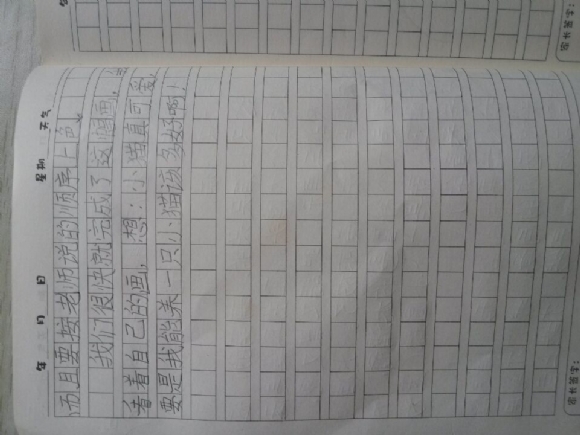 年 月 日 星期 天气
而且要按老师说的顺序上色。
我们很快就完成了这幅画。
看着自己的画，想：小猫真可爱，
要是我能养一只小猫该多好啊！